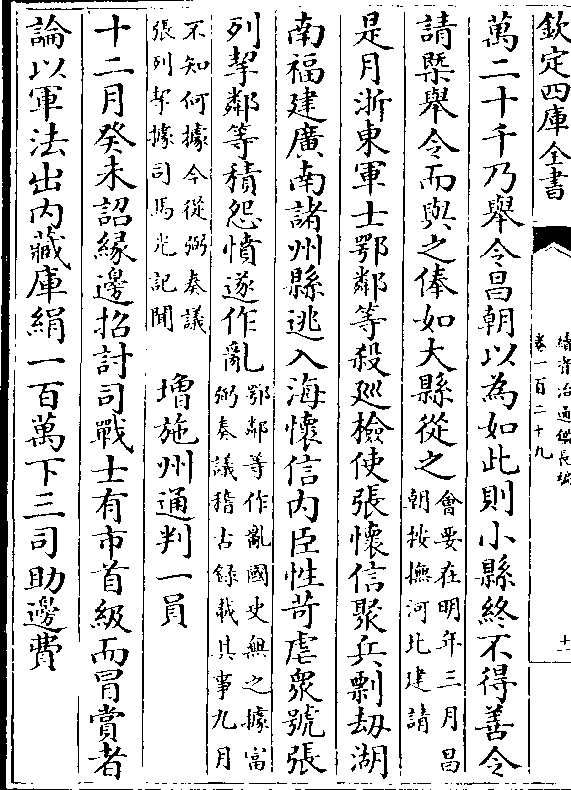 欽定四庫全書
續資治通鑑長編
卷一百二十九
十一
萬二十千乃舉令昌朝以為如此則小縣終不得善令
請槩舉令而與之俸如大縣從之
會要在明年三月昌
朝按撫河北建請
是月浙東軍士鄂鄰等殺廵檢使張懷信聚兵剽刼湖
南福建廣南諸州縣逃入海懷信内臣性苛虐衆號張
列挈鄰等積怨憤遂作亂
鄂鄰等作亂國史無之據富
弼奏議稽古錄載其事九月
不知何據今從弼奏議
張列挈據司馬光記聞
增施州通判一員
十二月癸未詔緣邊招討司戰士有市首級而冒賞者
論以軍法出内藏庫絹一百萬下三司助邊費